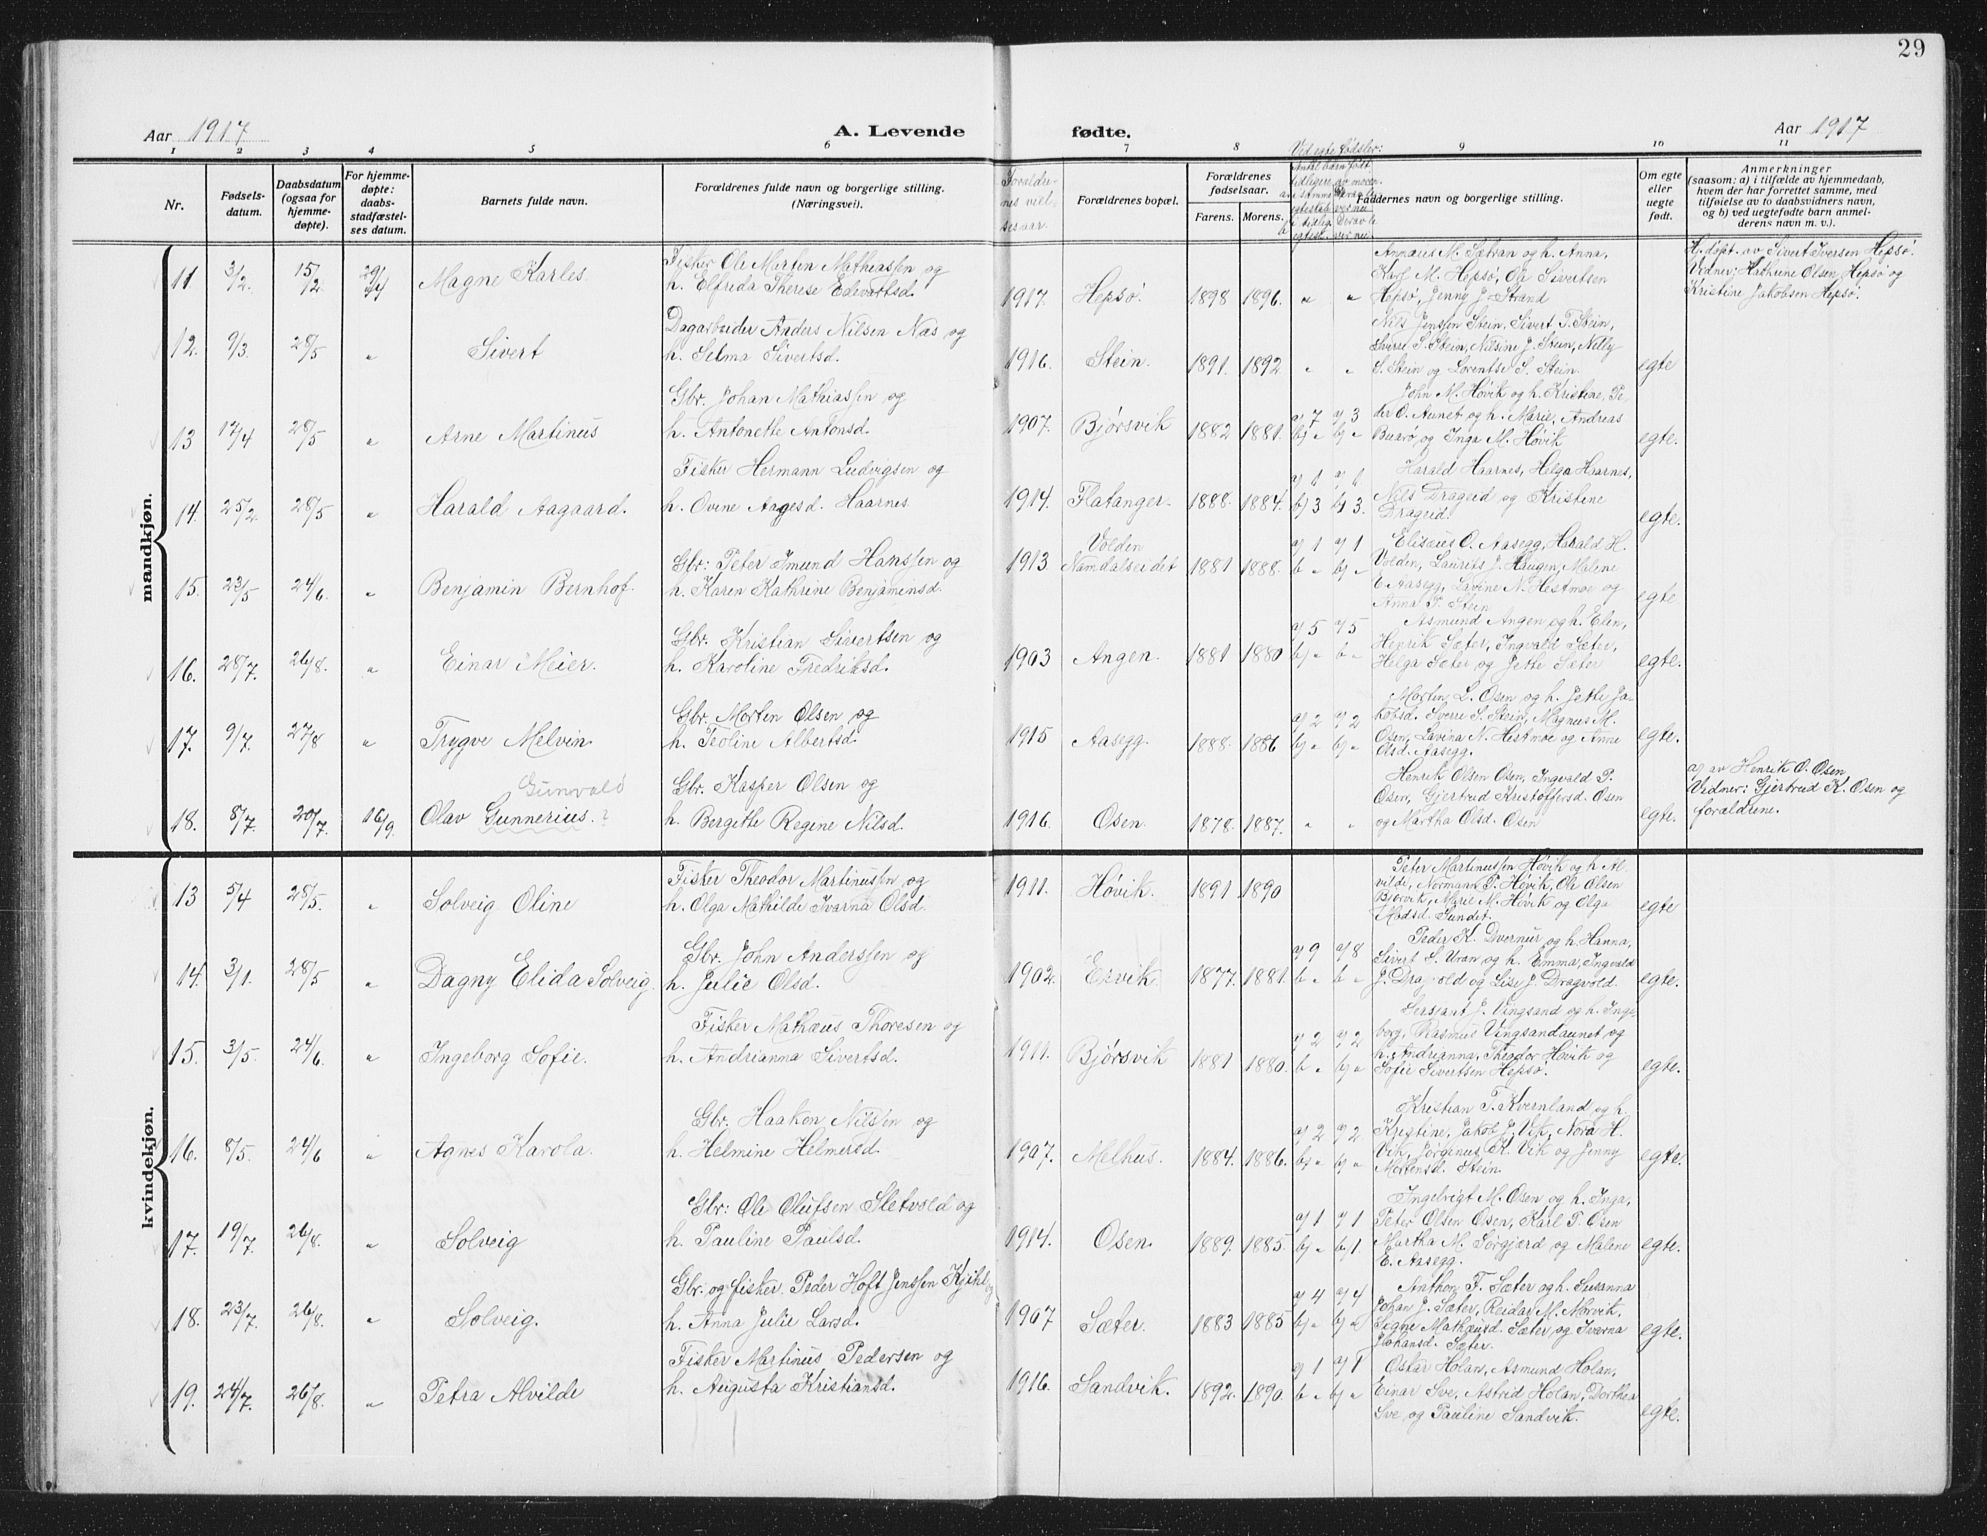 29
Aar 1917
A. Levende
fødte.
Aar 1917
1 2 3 4 5 6 7 8 9 10 11
Nr.
Fødsels-
datum.
Daabsdatum
(ogsaa for
hjemme-
døpte).
For hjemme-
døpte:
daabs-
stadfæstel-
ses datum.
Barnets fulde navn.
Forældrenes fulde navn og borgerlige stilling.
(Næringsvei).
Forældre-
nes viel-
sesaar.
Forældrenes bopæl.
Forældrenes
fødselsaar.
Farens. Morens.
Ved egte fødsler:
Faddernes navn og borgerlige stilling.
Om egte
eller
uegte
født.
Anmerkninger
(saasom: a) i tilfælde av hjemmedaab,
hvem der har forrettet samme, med
tilføielse av to daabsvidners navn,
og b) ved uegtefødte barn anmel-
derens navn m. v.).
mandkjøn.
11 3/2. 15/2. 29/4 Magne Karles
Fisker Ole Martin Mathiassen og
h. Elfrida Therese Edvartsd.
1917. Hepsø. 1898 1896. " "
Annæus M. Sætran og h. Anna,
Karl M. Hepsø, Ole Sivertsen
Hepsø, Jenny J. Strand
Hj. døpt. av Sivert Iversen Hepsø.
Vidner: Kathrine Olsen Hepsø og
Kristine Jakobsen Hepsø.
12. 9/3. 28/5 " Sivert
Dagarbeider Anders Nilsen Næs og
h. Selma Sivertsd.
1916. Stein. 1891. 1892 " "
Nils Jenssen Stein, Sivert T. Stein,
Sverre S. Stein, Nilsine J. Stein, Nelly
S. Stein og Lorentse S. Stein.
egte
13 17/4 28/5 " Arne Martinus
Gbr. Johan Mathiassen og
h. Antonette Antonsd.
1907. Bjørsvik 1882 1881. a) 7 a) 3
b) " b) "
John M. Høvik og h. Kristine, Pe-
der O. Aunet og h. Marie, Andreas
Buarø og Inga M. Høvik
egte.
14. 25/2 28/5 " Harald Aagaard.
Fisker Hermann Ludvigsen og
h. Ovine Aagesd. Haarnes
1914. Flatanger. 1888. 1884. a) 1 a) 1
b) 3 b) 3.
Harald Haarnes, Helga Haarnes,
Nils Drageid og Kristine
Drageid.
egte.
15. 23/5 24/6. " Benjamin Bernhof.
Gbr: Peter Imund Hanssen og
h. Karen Kathrine Benjaminsd.
1913. Volden
Namdalseidet 1881 1888. a) 1 a) 1
b " b) "
Elisæus O. Aasegg, Harald H.
Volden, Laurits J. Haugen, Malene
E. Aasegg, Lavine N. Hestmoe og
Anna P. Stein
egte
16. 28/7. 26/8. " Einar Meier.
Gbr. Kristian Sivertsen og
h. Karoline Fredriksd.
1903 Angen. 1881 1880 a) 5 a) 5
b) " b "
Asmund Angen og h. Elen,
Henrik Sæter, Ingvald Sæter,
Helga Sæter og Jette Sæter
egte.
17. 9/7. 27/8 " Trygve Melvin.
Gbr. Morten Olsen og
h. Teoline Albertsd.
1915 Aasegg. 1888. 1886 a) 2 a) 2
b) " b) "
Martin L. Osen og h. Jette Ja-
kobsd. Sverre S. Stein, Magnus M.
Osen, Lavina N. Hestmoe og Anne
Olsd. Aasegg.
egte.
Gunvald
18. 8/7. 20/7. 16/9. Olav Gunnerius. ?
Gbr. Kasper Olsen og
h. Bergitte Regine Nilsd.
1916. Osen. 1878. 1887. " "
Henrik Olsen Osen, Ingvald P.
Osen, Gjertrud Kristoffersd. Osen
og Martha Olsd. Osen
egte.
a) av Henrik O. Osen
Vidner: Gjertrud K. Osen og
forældrene.
kvindekjøn.
13 5/4 28/5. " Solveig Oline
Fisker Theodor Martinussen og
h. Olga Mathilde Ivarna Olsd.
1911. Høvik. 1891 1890
Peter Martinussen Høvik og h. Al-
vilde, Normann P. Høvik, Ole Olsen
Bjørvik, Marie M. Høvik og Olga
Madsd. Sundet.
egte
14. 3/1. 28/5 " Dagny Elida Solveig.
Gbr. John Anderssen og
h. Julie Olsd.
1902. Ervik. 1877. 1881. a) 9 a) 8
b " b "
Peder K. Dvernur og h. Hanna,
Sivert S. Uran og h. Emma, Ingvald
J. Dragvold og Lise J. Dragvold.
egte.
15. 3/5. 24/6. " Ingeborg Sofie.
Fisker Mathæus Thoresen og
h. Andrianna Sivertsd.
1911. Bjørsvik 1881 1880. a) 2 a) 2
b " b) "
Sersjant J. Vingsand og h. Inge-
borg, Rasmus Vingsandaunet og
h. Andrianna, Theodor Høvik og
Sofie Sivertsen Hepsø.
egte.
16. 8/5. 24/6 " Agnes Karola.
Gbr. Haakon Nilsen og
h. Helmine Helmersd.
1907. Melhus. 1884. 1886. a) 2 a) 2
b) " b) "
Kristian T. Kvernland og h.
Kristine, Jakob J. Vik, Nora H.
Vik, Jørginus K. Vik og Jenny
Mortensd. Stein.
egte.
17. 19/7. 26/8. " Solveig
Gbr: Ole Olufsen Sletvold og
h. Pauline Paulsd.
1914. Osen. 1889. 1885. a) 1 a) 1
b) " b) 1.
Ingebrigt M. Osen og h. Inga,
Peter Olsen Osen, Karl P. Osen
Martha M. Sørgjærd og Malene
E. Aasegg.
egte.
18. 23/7. 26/8. " Solveig.
Gbr. og fisker. Peder Hoft Jenssen Kjihl og
h. Anna Julie Larsd.
1907 Sæter. 1883 1885 a) 4 a) 4
b) " b) "
Anthon F. Sæter og h. Susanna
Johan J. Sæter, Reidar M. Morvik,
Signe Mathæusd. Sæter og Ivarna
Johansd. Sæter.
egte.
19. 24/7. 26/8. " Petra Alvilde
Fisker Martinus Pedersen og
h. Augusta Kristiansd.
1916. Sandvik. 1892. 1890. a) 1 a) 1
b " b) "
Oskar Holan, Asmund Holan,
Einar Sve, Astrid Holan, Dorthea
Sve, og Pauline Sandvik.
egte.